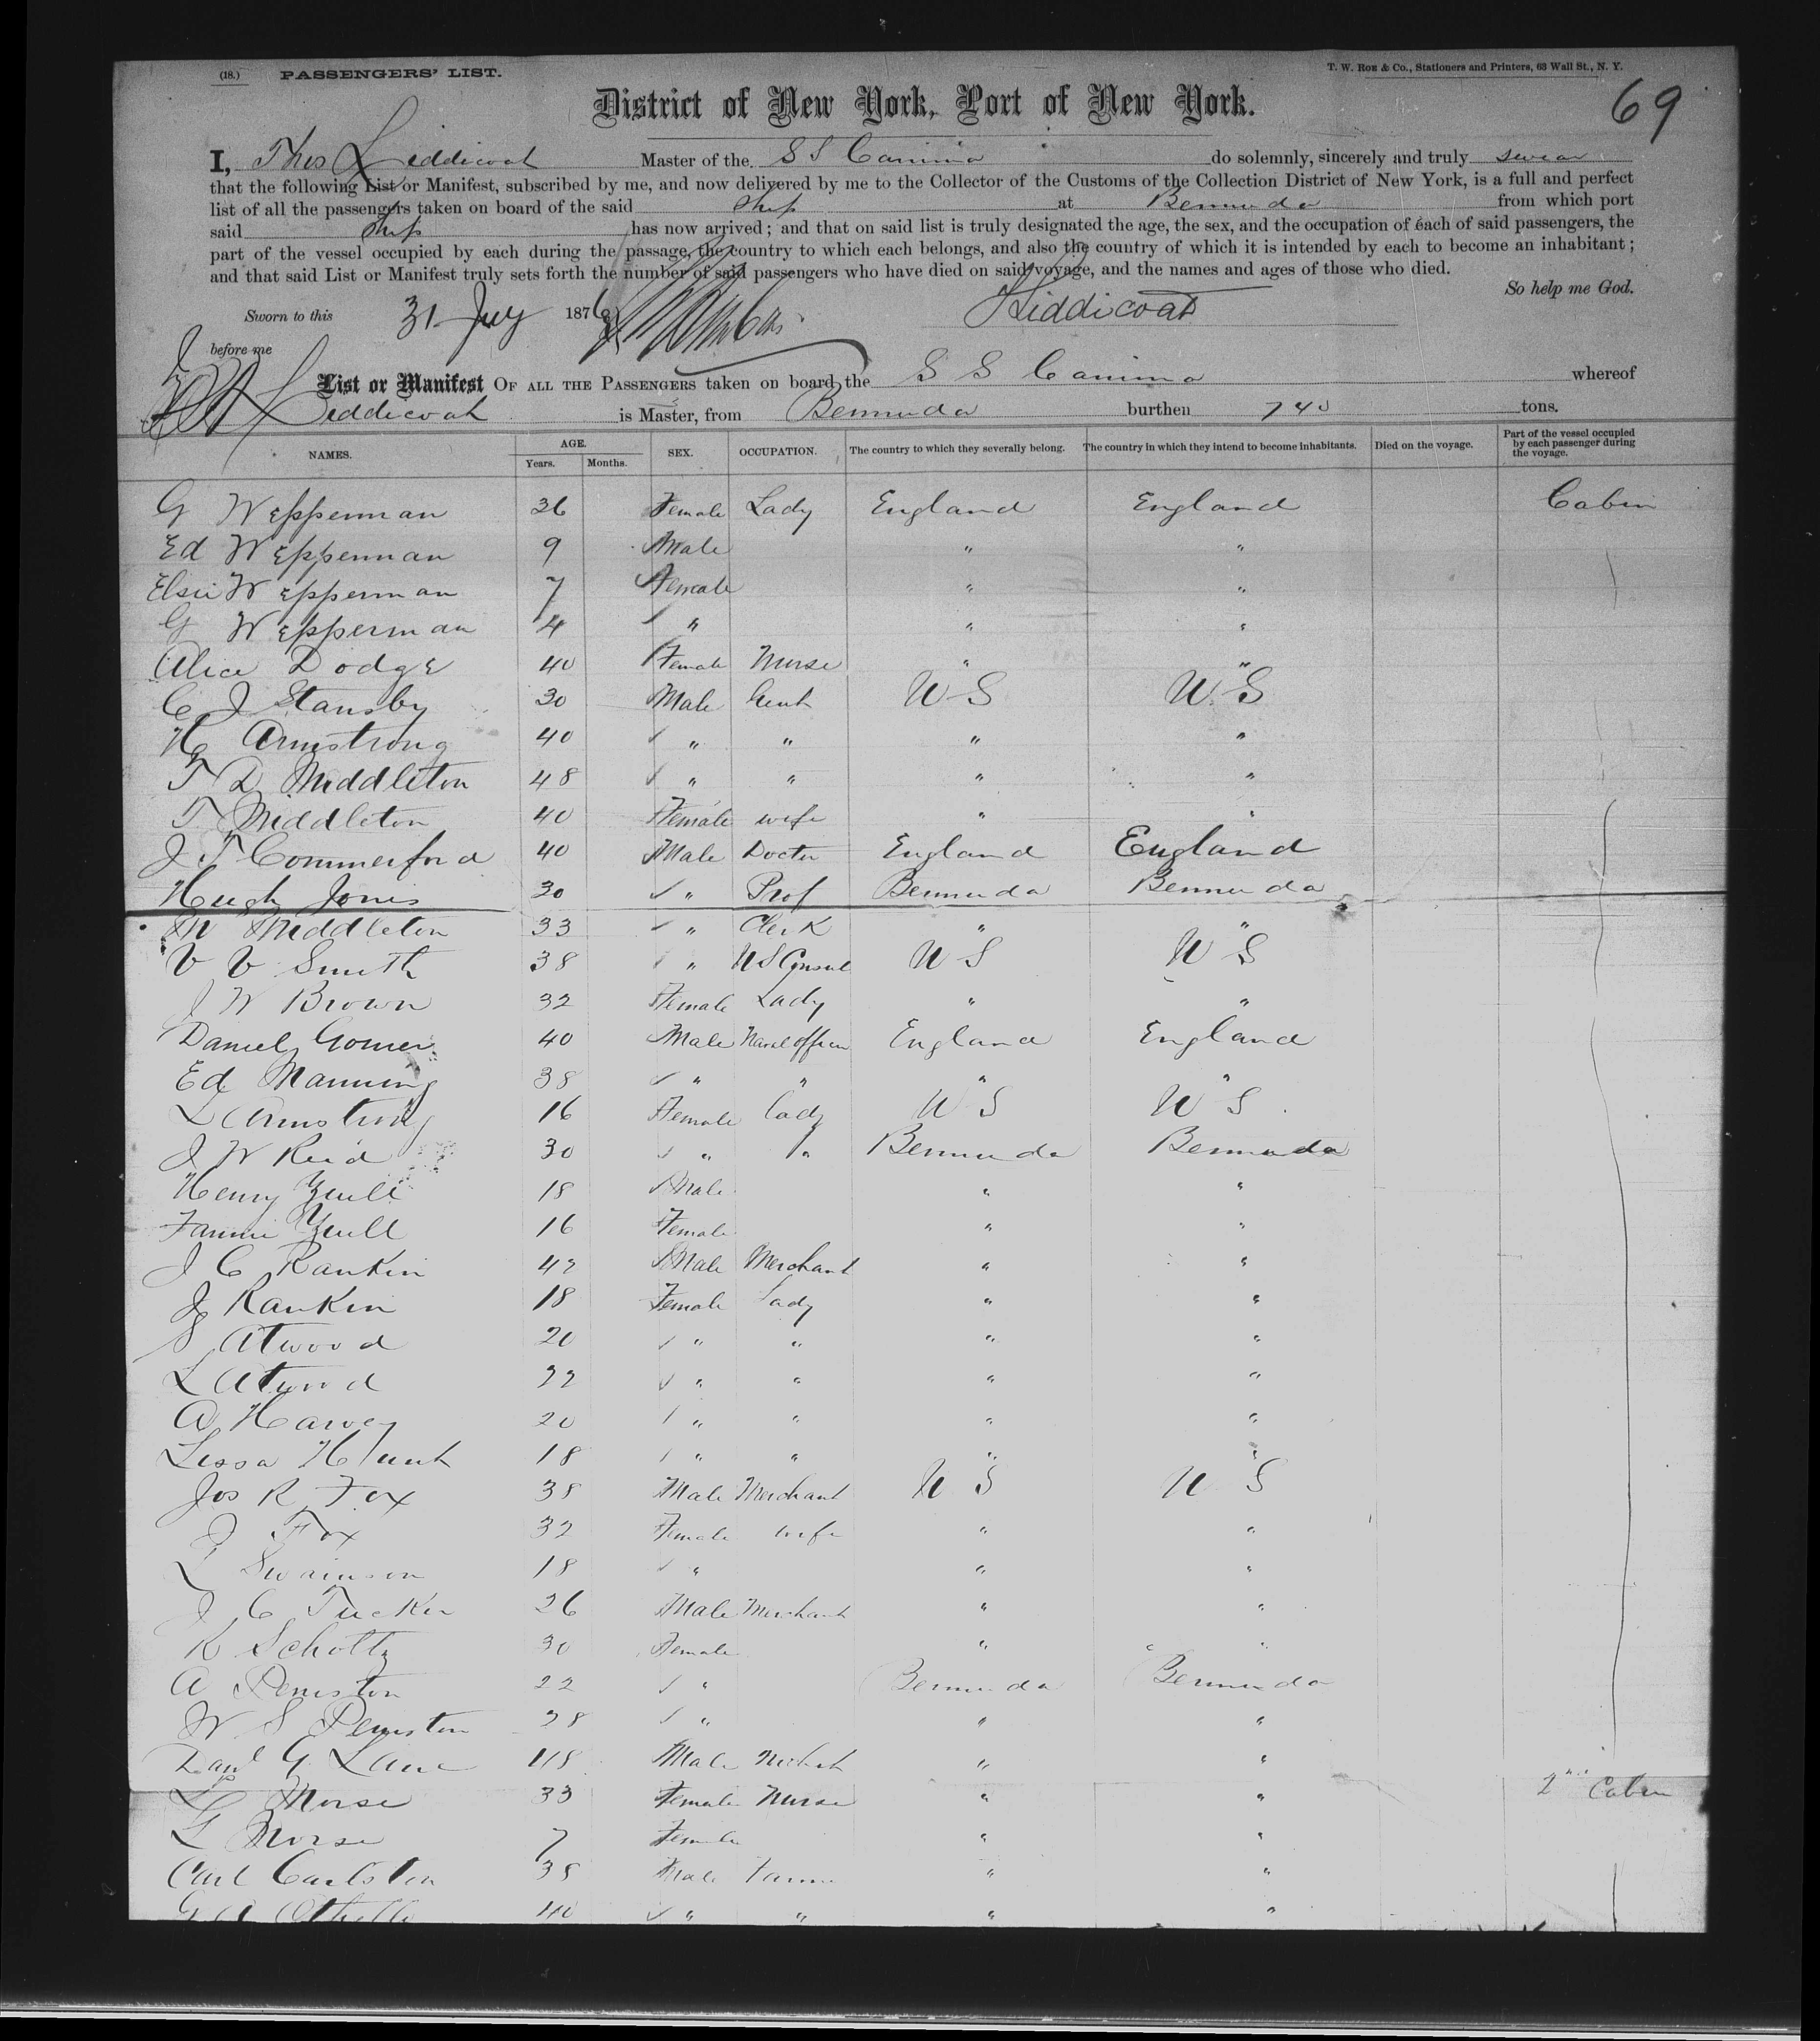 (18.) PASSENGERS' LIST. T. W. ROE & CO., Stationers and Printers, 63 Wall St., N. Y.
District of New York, Port of New York. 69
I, Thos Liddicoat Master of the S S Canima do solemnly, sincerely and truly swear
that the following List or Manifest, subscribed by me, and now delivered by me to the Collector of the Customs of the Collection District of New York, is a full and perfect
list of all the passengers taken on board of the said Ship at Bermuda from which port
said Ship has now arrived; and that on said list is truly designated the age, the sex, and the occupation of each of said passengers, the
part of the vessel occupied by each during the passage, the country to which each belongs, and also the country of which it is intended by each to become an inhabitant;
and that said List or Manifest truly sets forth the number of said passengers who have died on said voyage, and the names and ages of those who died.
So help me God.
Sworn to this 31 July 1876 Liddicoat
before me
List or Manifest OF ALL THE PASSENGERS taken on board the S S Canima whereof
Liddicoat is Master, from Bermuda burthen 740 tons.
NAMES. AGE. Years. Months. SEX. OCCUPATION. The country to which they severally belong. The country in which they intend to become inhabitants. Died on the voyage. Part of the vessel occupied by each passenger during the voyage.
G Wepperman 36 Female Lady England England Cabin
Ed Wepperman 9 Male " "
Elsie Wepperman 7 Female " "
G Wepperman 4 " " "
Alice Dodge 40 Female Nurse " "
C J Stansby 30 Male Gent U S U. S
H Armstrong 40 " " " "
T D Middleton 48 " " " "
T Middleton 40 Female wife " "
J T Commerford 40 Male Doctor England England
Hugh Jones 30 " Prof Bermuda Bermuda
M Middleton 33 " Clerk " "
V V Smith 38 " U S Consul U S U S
J W Brown 32 Female Lady " "
Daniel Gomer 40 Male Naval officer England England
Ed Manning 38 " " " "
L Armstrong 16 Female Lady U S U S
J W Reid 30 " " Bermuda Bermuda
Henry Zuill 18 Male " "
Fannie Zuill 16 Female " "
J C Rankin 42 Male Merchant " "
J Rankin 18 Female Lady " "
S Atwood 20 " " " "
L Atwood 22 " " " "
A Harvey 20 " " " "
Lessa Hunt 18 " " " "
Jos R Fox 38 Male Merchant U S U S
J Fox 32 Female wife " "
L Swainson 18 " " "
J C Tucker 26 Male Merchant " "
K Scholtz 30 Female " "
A Peniston 22 " Bermuda Bermuda
W S Peniston 28 " " "
Danl G. Lane 48 Male " "
L Morse 33 Female Nurse " " 2nd Cabin
L Morse 7 Female " "
Carl Carlston 38 Male Farmer " "
G A Othello 40 " " " "